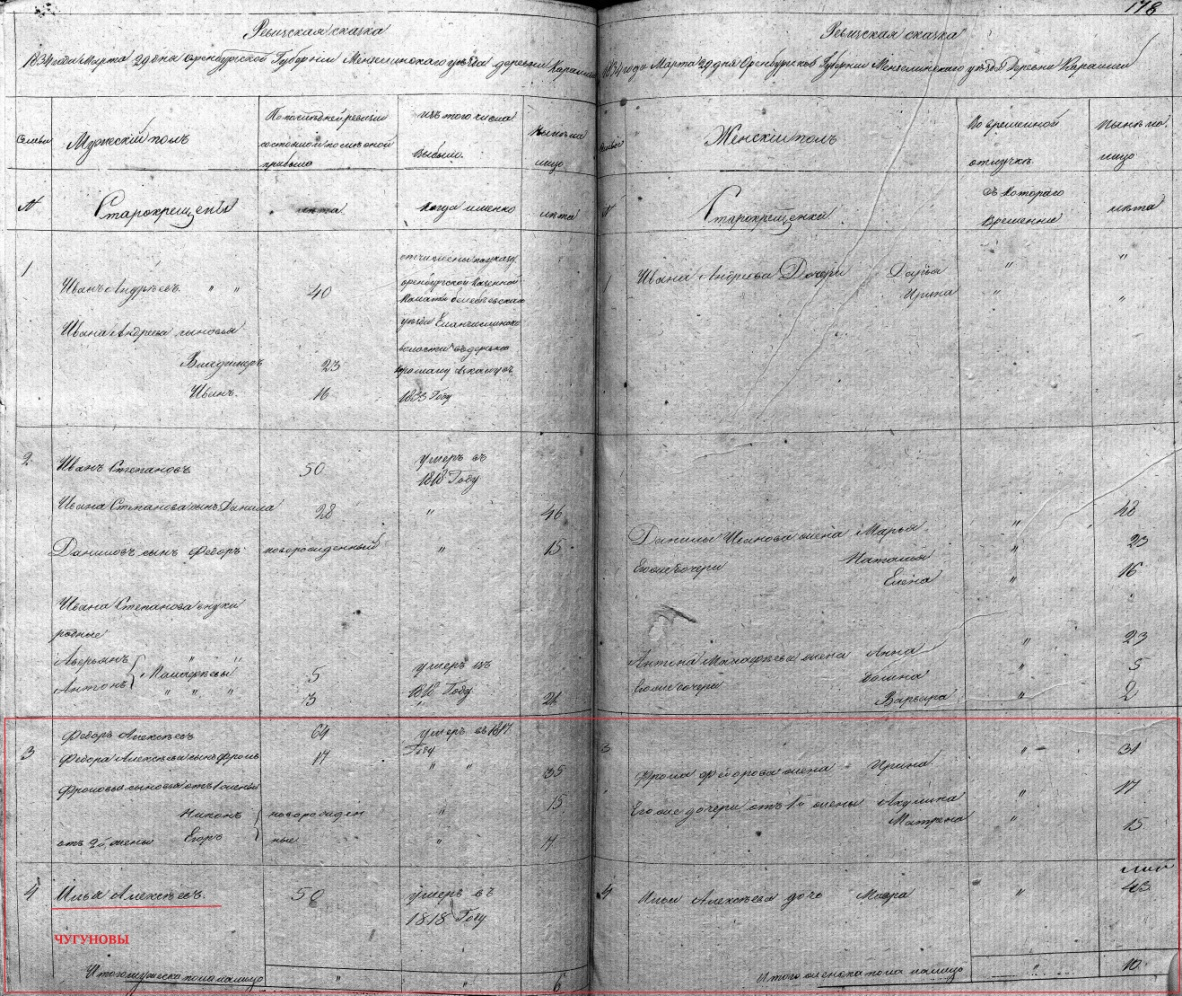 178
Ревизская сказка
1834 года Марта 29 дня Оренбургской Губернии Мензелинского уезда деревни
Семьи
Мужеский полъ
По последней ревизии состояло и после оной прибыло
Изъ того числа выбыло
Ныне на лицо
№
Старокрещены
лета
когда именно
лета
1
Иванъ Андреевъ " "
40
отчислены по указу
оренбургской казенной
Палаты Белебеевскаго
уезда
волости въ деревню
1833 Году
Ивана Андреева сыновья
Владимеръ
23
Иванъ.
16
2
Иванъ Степановъ
50
умеръ въ
1818 Году
Ивана Степанова сынъ Данила
28
"
46
Даниловъ сынъ Федоръ
новорожденный
"
15
Ивана Степанова внуки
родные
Аверьянъ " "
5
умеръ въ
Антонъ " " "
3
1818 Году
21
3
Федоръ Алексеевъ
64
умеръ въ 1817
Году
Федора Алексеева сынъ Фролъ
17
" "
35
Фроловы сыновья отъ 1 жены
Никонъ
новорожден
"
15
отъ 2й жены Егоръ
ные
"
4
Илья Алексеевъ.
58
умеръ въ
1818 Году
ЧУГУНОВЫ
Итого мужеска пола налицо
"
"
6
Ревизская сказка
1834 года Марта 29 дня Оренбургской Губернии Мензелинского уезда Деревни
Женский полъ
Во временной
отлучке
Ныне на
лицо
№
Старокрещенки
съ котораго
времени
лета
1
Ивана Андреева Дочери Дарья
"
"
Ирина
"
"
Данилы Иванова жена Марья
"
48
Его же дочери Наталья
"
23
Елена
"
16
Антона жена Анна
"
23
Его же дочери
"
5
Варвара
"
2
3
Фрола Федорова жена Ирина
"
31
Его же дочери отъ 1й жены Акулина
"
17
Матрена
"
15
4
Ильи Алексеева дочь Мавра
"
43
Итого женска пола налицо
"
10